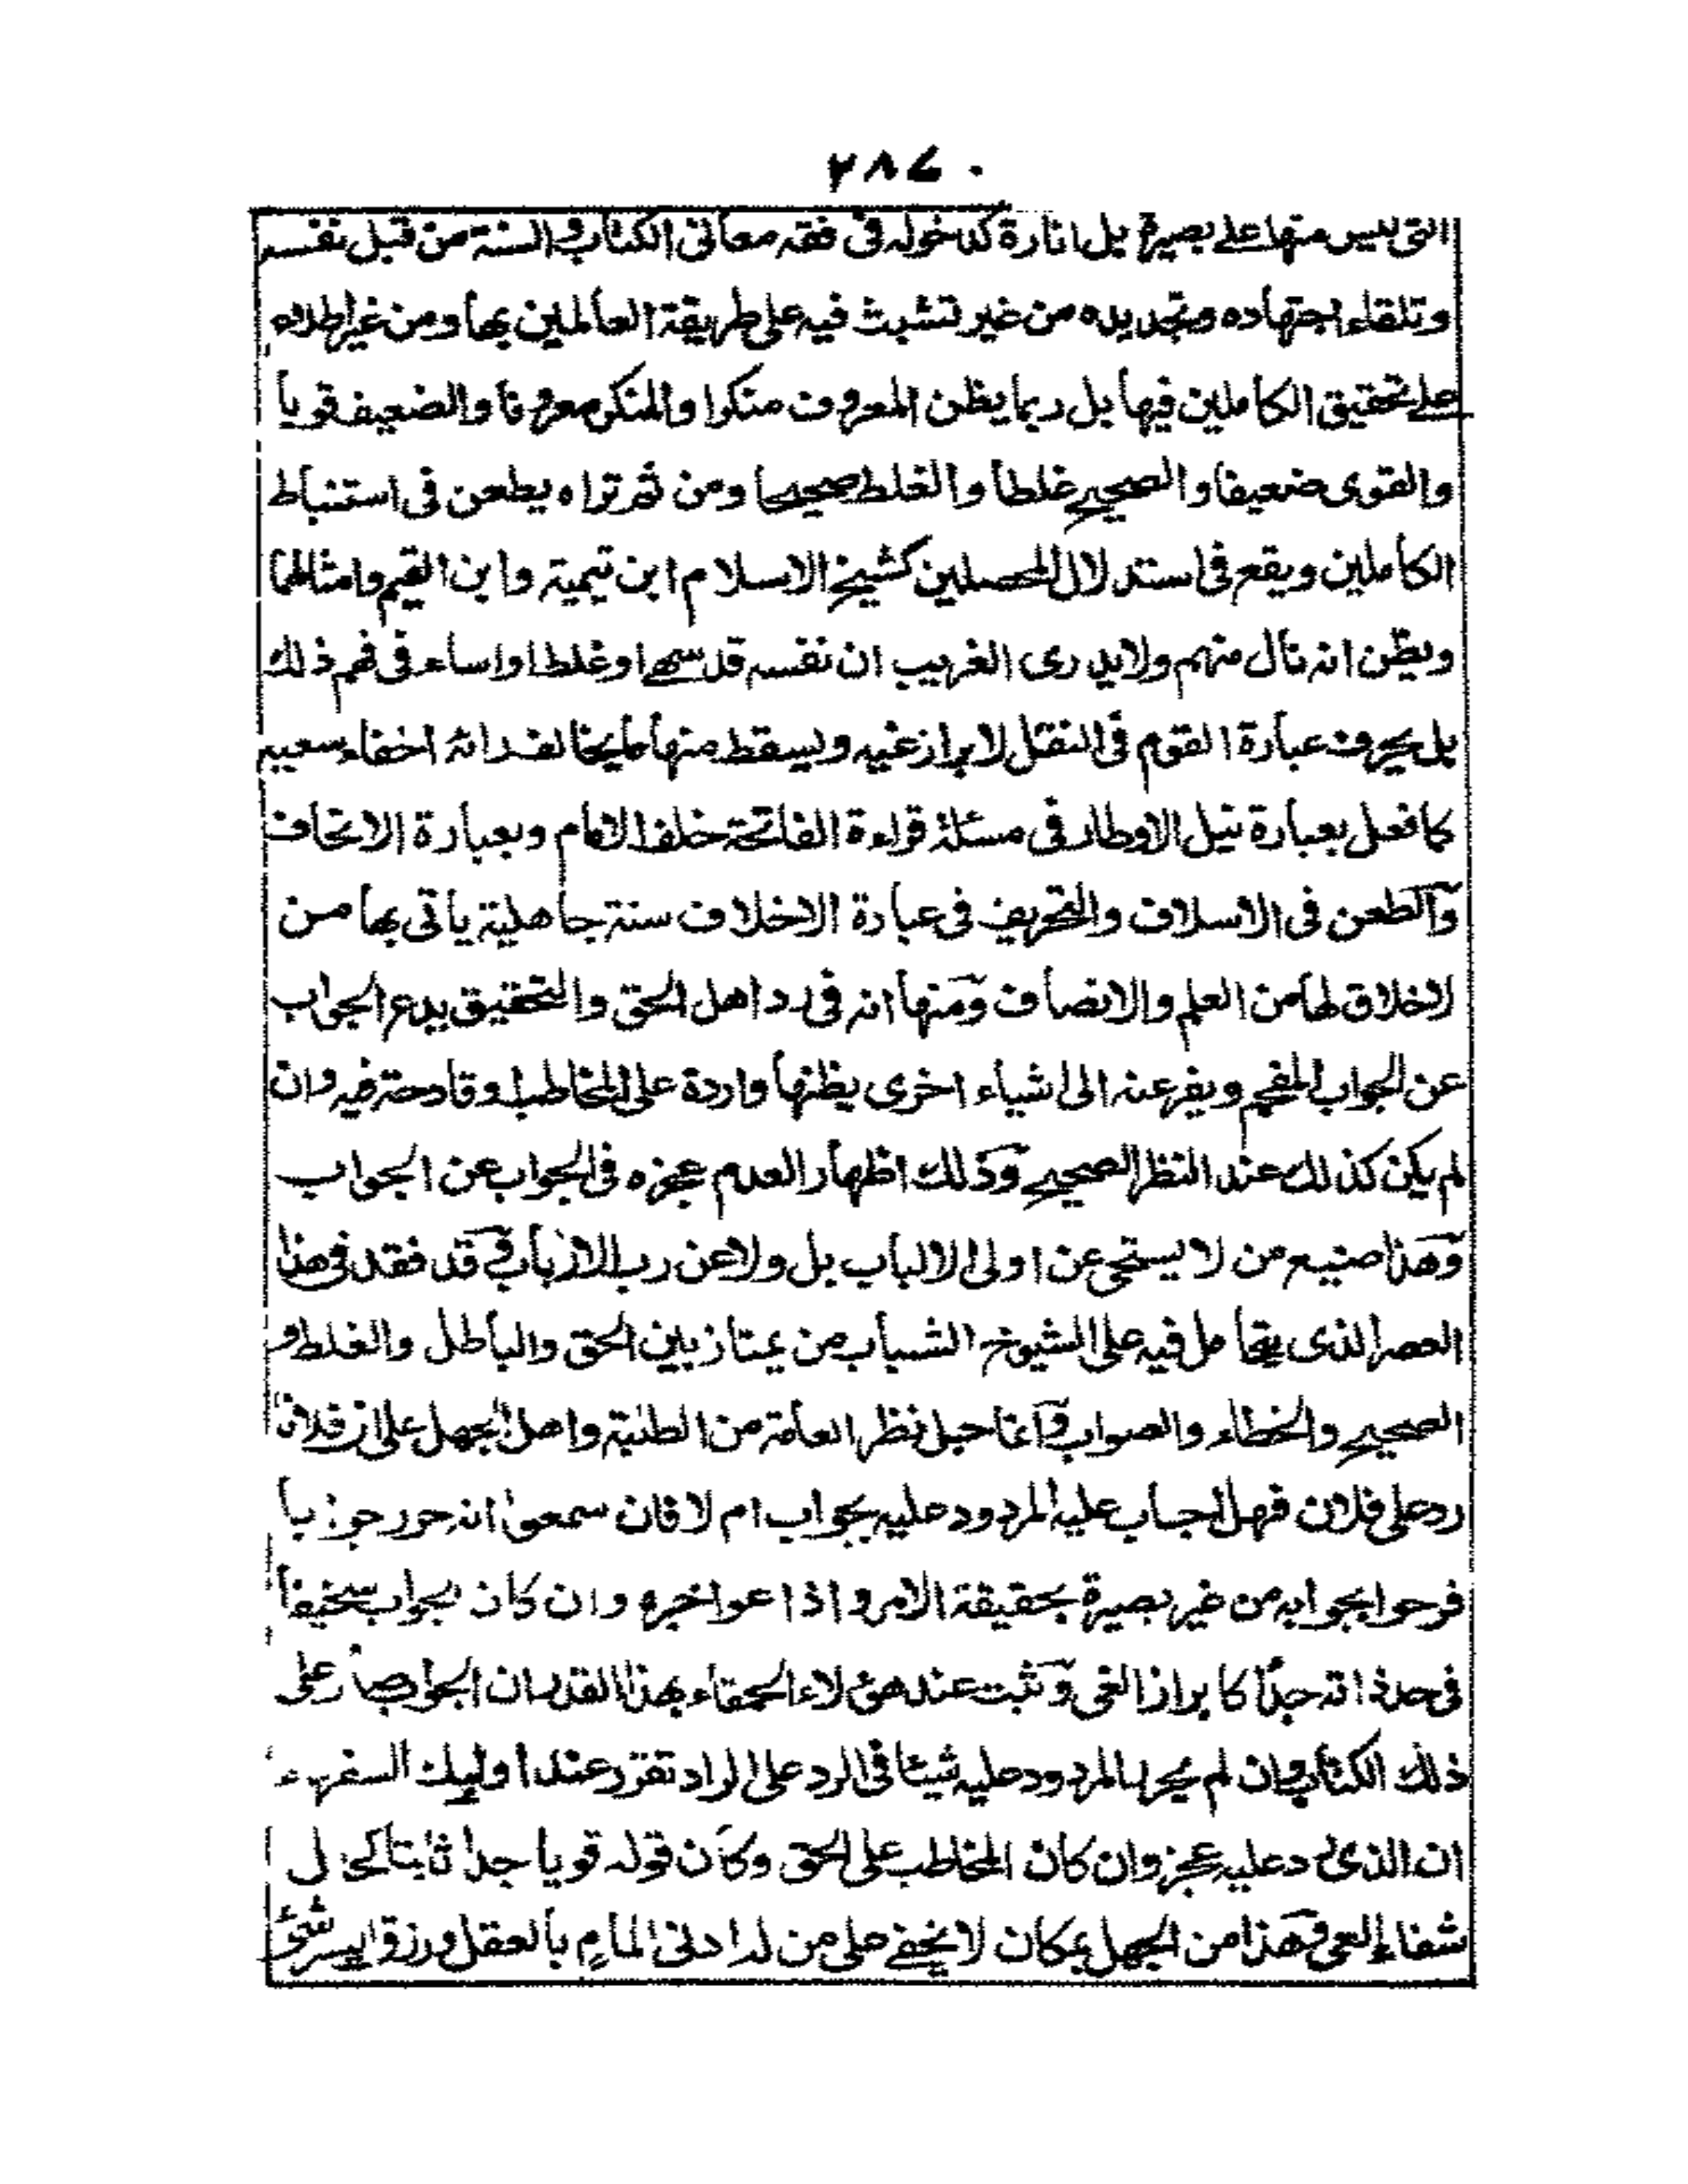 ٢٨٧
التى ليس منها على بصيرة بل انارة كدخوله فى فقه معانى الكتاب والسنة من قبل نفسه
وتلقاء اجتهاده وتجديده من غير تشبث فيه على طريقة العالمين بها ومن غير اطلاع
على تحقيق الكاملين فيها بل ربما يظن المعروف منكرا والمنكر معروفا والضعيف قويا
والقوى ضعيفا والصحيح غلطا والغلط صحيحا ومن ثم تراه يطعن فى استنباط
الكاملين ويقع فى استدلال المحصلين كشيخ الاسلام ابن تيمية وابن القيم وامثالهما
ويظن انه نال منهم ولا يدرى الغريب ان نفسه قد سها وغلط او اساء فى فهم ذلك
بل يحرف عبارة القوم فى النقل لابراز غيه ويسقط منها ما يخالفه ارائه اخفاء سعيه
كما فعل بعبارة نيل الاوطار فى مسئلة قراءة الفاتحة خلف الامام وبعبارة الاتحاف
والطعن فى الاسلاف والتحريف فى عبارة الاخلاف سنة جاهلية ياتى بها من
لاخلاق لها من العلم والانصاف ومنها انه فى رد اهل الحق والتحقيق يدع الجواب
عن الجواب المفحم ويفر عنه الى اشياء اخرى يظنها واردة على المخاطب وقادحة فيه وان
لم يكن كذلك عند النظر الصحيح وذلك اظهار العدم عجزه فى الجواب عن الجواب
وهذا صنيع من لا يستحى عن اولى الالباب بل ولا عن رب الارباب وقد فقد فى هذا
العصر الذى يتحامل فيه على الشيوخ الشباب من يمتاز بين الحق والباطل والغلط و
الصحيح والخطاء والصواب وانما جل نظر العامة من الطلبة واهل الجهل على ان فلانا
رد على فلان فهل اجاب عليه المردود عليه بجواب ام لا فان سمعوا انه حرر جوابا
فرحوا بجوابه من غير بصيرة بحقيقة الامر واذاعوا خبره وان كان الجواب سخيفا
فى حد ذاته جدًا كابراز الغى وثبت عند هؤلاء الحمقاء بهذا القدر ان الجواب صار على
ذلك الكتاب وان لم يحرر المردود عليه شيئا فى الرد على الراد تقرر عند اوليك السفهاء
ان الذى رد عليه عجز وان كان المخاطب على الحق وكان قوله قويا جدا ثابتا
شفاء العى وهذا من الجهل بمكان لا يخفى على من له ادنى المام بالعقل ورزق ايسر شئ